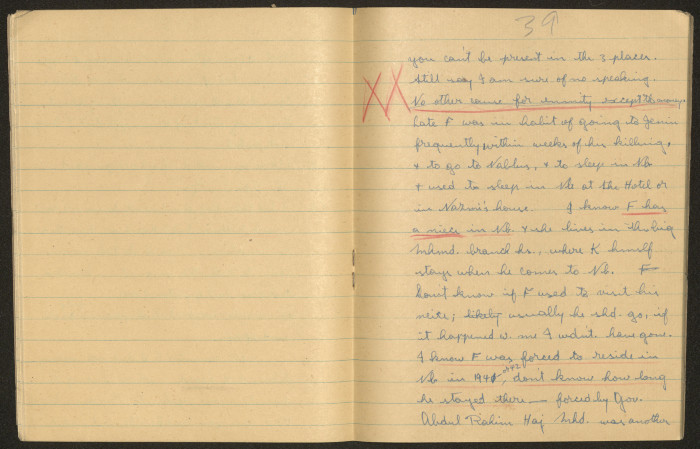 39
you can't be present in the 3 places.
Still say I am sure of no speaking.
XX No other cause for enmity except the money.
Late F was in habit of going to Jenin
frequently, within weeks of his killing,
& to go to Nablus, & to sleep in Nb
& used to sleep in Nb at the Hotel or
in Nazmi's house. I know F has
a niece in Nb. & she lives in the big
branch hs., where K himself
stays when he comes to Nb. F
don't know if F used to visit his
neice; likely usually he shd. go, if
it happened w. me I wdn't have gone.
I know F was forced to reside in
Nb in 1941 or 42, don't know how long
he stayed there — forced by Gov.
Abdul Rahim Haj Mhd. was another